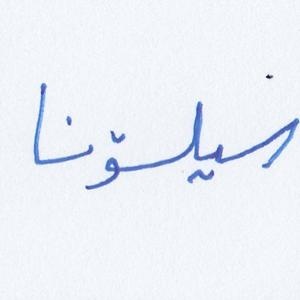 رسیلۆنا